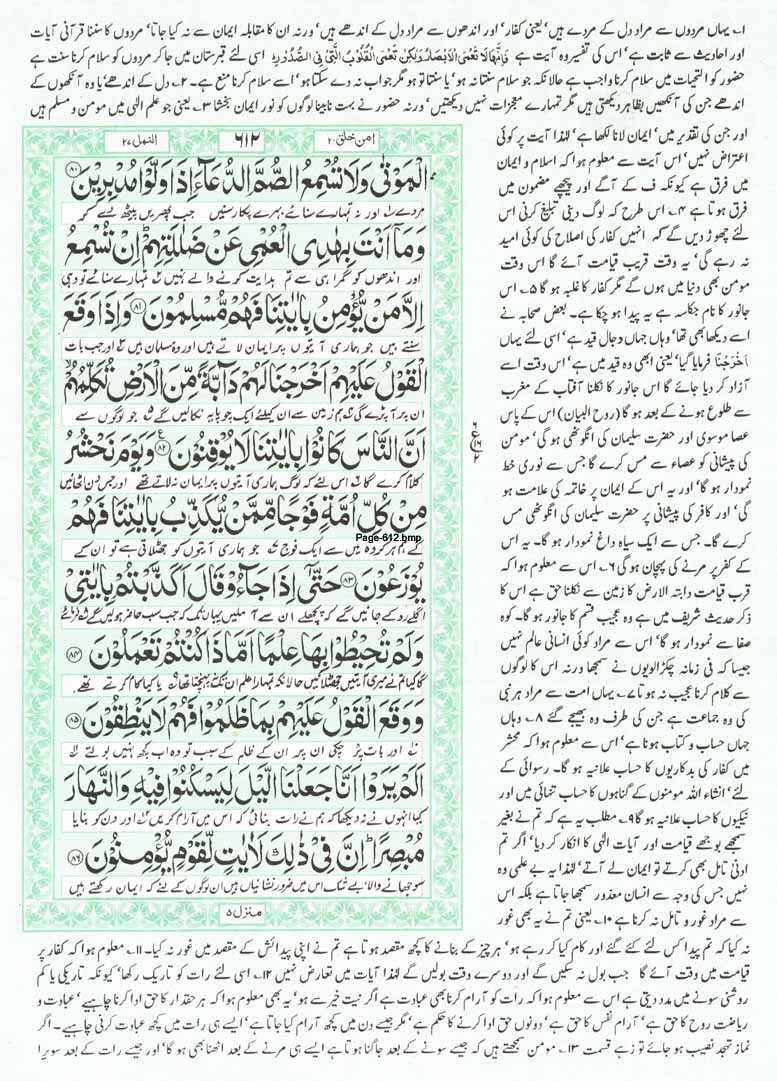 ۱۔ یہاں مردوں سے مراد دل کے مردے ہیں، یعنی کفار، اور اندھوں سے مراد دل کے اندھے ہیں، ورنہ ان کا مقابلہ ایمان سے نہ کیا جاتا، مردوں کا سننا قرآنی آیات
اور احادیث سے ثابت ہے، اس کی تفسیر وہ آیت ہے فَاِنَّهَا لَا تَعْمَى الْاَبْصَارُ وَلٰكِنْ تَعْمَى الْقُلُوْبُ الَّتِىْ فِى الصُّدُوْرِ اسی لئے قبرستان میں جا کر مردوں کو سلام کرنا سنت ہے
حضور کو التحیات میں سلام کرنا واجب ہے حالانکہ جو سلام سنتا نہ ہو، یا سنتا تو ہو مگر جواب نہ دے سکتا ہو، اسے سلام کرنا منع ہے۔ ۲۔ دل کے اندھے، یا وہ آنکھوں کے
اندھے جن کی آنکھیں بظاہر دیکھتی ہیں مگر تمہارے معجزات نہیں دیکھتیں، ورنہ حضور نے بہت نابینا لوگوں کو نور ایمان بخشا ۳۔ یعنی جو علم الٰہی میں مومن و مسلم ہیں
اور جن کی تقدیر میں، ایمان لانا لکھا ہے، لہٰذا آیت پر کوئی
اعتراض نہیں، اس آیت سے معلوم ہوا کہ اسلام و ایمان
میں فرق ہے کیونکہ ف کے آگے اور پیچھے مضمون میں
فرق ہوتا ہے ۴۔ اس طرح کہ لوگ دینی تبلیغ کرنی اس
لئے چھوڑ دیں گے کہ انہیں کفار کی اصلاح کی کوئی امید
نہ رہے گی، یہ وقت قریب قیامت آئے گا اس وقت
مومن بھی دنیا میں ہوں گے مگر کفار کا غلبہ ہو گا ۵۔ اس
جانور کا نام جساسہ ہے یہ پیدا ہو چکا ہے۔ بعض صحابہ نے
اسے دیکھا بھی تھا، وہاں جہاں دجال قید ہے، اسی لئے یہاں
اَخْرَجْنَا فرمایا گیا، یعنی ابھی وہ قید میں ہے، اس وقت اسے
آزاد کر دیا جائے گا اس جانور کا نکلنا آفتاب کے مغرب
سے طلوع ہونے کے بعد ہو گا (روح البیان) اس کے پاس
عصا موسوی اور حضرت سلیمان کی انگوٹھی ہو گی، مومن
کی پیشانی کو عصاء سے مس کرے گا جس سے نوری خط
نمودار ہو گا، اور یہ اس کے ایمان پر خاتمہ کی علامت ہو
گی، اور کافر کی پیشانی پر حضرت سلیمان کی انگوٹھی مس
کرے گا۔ جس سے ایک سیاہ داغ نمودار ہو گا۔ یہ اس
کے کفر پر مرنے کی پہچان ہو گی ۶۔ اس سے معلوم ہوا کہ
قرب قیامت دابتہ الارض کا زمین سے نکلنا حق ہے اس کا
ذکر حدیث شریف میں ہے وہ عجیب قسم کا جانور ہو گا۔ کوہ
صفا سے نمودار ہو گا، اس سے مراد کوئی انسانی عالم نہیں
جیسا کہ فی زمانہ چکڑالویوں نے سمجھا ورنہ اس کا لوگوں
سے کلام کرنا عجیب نہ ہوتا ۷۔ یہاں امت سے مراد ہر نبی
کی وہ جماعت ہے جن کی طرف وہ بھیجے گئے ۸۔ وہاں
جہاں حساب و کتاب ہونا ہے، اس سے معلوم ہوا کہ محشر
میں کفار کی بدکاریوں کا حساب علانیہ ہو گا۔ رسوائی کے
لئے، انشاء اللہ مومنوں کے گناہوں کا حساب تنہائی میں اور
نیکیوں کا حساب علانیہ ہو گا ۹۔ مطلب یہ ہے کہ تم نے بغیر
سمجھے بوجھے قیامت اور آیات الٰہی کا انکار کر دیا، اگر تم
ادنیٰ تامل بھی کرتے تو ایمان لے آتے، لہٰذا یہ بے علمی وہ
نہیں جس کی وجہ سے انسان معذور سمجھا جاتا ہے بلکہ اس
سے مراد غور و تامل نہ کرنا ہے ۱۰۔ یعنی تم نے یہ بھی غور
امن خلق ۲۰
۶۱۲
النمل ۲۷
الْمَوْتٰى وَلَا تُسْمِعُ الصُّمَّ الدُّعَآءَ اِذَا وَلَّوْا مُدْبِرِيْنَ ۸۰
مردے اور نہ تمہارے سنائے بہرے پکار سنیں جب پھریں پیٹھ دے کر
وَمَآ اَنْتَ بِهٰدِى الْعُمْىِ عَنْ ضَلٰلَتِهِمْ اِنْ تُسْمِعُ
اور اندھوں کو گمراہی سے تم ہدایت کرنے والے نہیں تمہارے سنائے تو وہی
اِلَّا مَنْ يُّؤْمِنُ بِاٰيٰتِنَا فَهُمْ مُّسْلِمُوْنَ ۸۱ وَاِذَا وَقَعَ
سنتے ہیں جو ہماری آیتوں پر ایمان لاتے ہیں اور وہ مسلمان ہیں اور جب بات
الْقَوْلُ عَلَيْهِمْ اَخْرَجْنَا لَهُمْ دَآبَّةً مِّنَ الْاَرْضِ تُكَلِّمُهُمْ
ان پر آ پڑے گی ہم زمین سے ان کیلئے ایک چوپایہ نکالیں گے جو لوگوں سے
اَنَّ النَّاسَ كَانُوْا بِاٰيٰتِنَا لَا يُوْقِنُوْنَ ۸۲ وَيَوْمَ نَحْشُرُ
کلام کرے گا اس لئے کہ لوگ ہماری آیتوں پر ایمان نہ لاتے تھے اور جس دن اٹھائیں
مِنْ كُلِّ اُمَّةٍ فَوْجًا مِّمَّنْ يُّكَذِّبُ بِاٰيٰتِنَا فَهُمْ
Page-612.bmp
گے ہم ہر گروہ میں سے ایک فوج جو ہماری آیتوں کو جھٹلاتی ہے تو ان کے
يُوْزَعُوْنَ ۸۳ حَتّٰٓى اِذَا جَآءُوْ قَالَ اَكَذَّبْتُمْ بِاٰيٰتِىْ
اگلے روکے جائیں گے کہ پچھلے ان سے آ ملیں یہاں تک کہ جب سب حاضر ہو لیں گے
وَلَمْ تُحِيْطُوْا بِهَا عِلْمًا اَمَّاذَا كُنْتُمْ تَعْمَلُوْنَ ۸۴
کیا تم نے میری آیتیں جھٹلائیں حالانکہ تمہارا علم ان تک نہ پہنچتا تھا یا کیا کام کرتے تھے
وَوَقَعَ الْقَوْلُ عَلَيْهِمْ بِمَا ظَلَمُوْا فَهُمْ لَا يَنْطِقُوْنَ ۸۵
اور بات پڑ چکی ان پر ان کے ظلم کے سبب تو وہ اب کچھ نہیں بولتے
اَلَمْ يَرَوْا اَنَّا جَعَلْنَا الَّيْلَ لِيَسْكُنُوْا فِيْهِ وَالنَّهَارَ
کیا انہوں نے نہ دیکھا کہ ہم نے رات بنائی کہ اس میں آرام کریں اور دن کو بنایا
مُبْصِرًا اِنَّ فِىْ ذٰلِكَ لَاٰيٰتٍ لِّقَوْمٍ يُّؤْمِنُوْنَ ۸۶
سوجھانے والا بے شک اس میں ضرور نشانیاں ہیں ان لوگوں کے لئے کہ ایمان رکھتے ہیں
منزل ۵
نہ کیا کہ تم پیدا کس لئے کئے گئے اور کام کیا کر رہے ہو، ہر چیز کے بنانے کا کچھ مقصد ہوتا ہے تم نے اپنی پیدائش کے مقصد میں غور نہ کیا۔ ۱۱۔ معلوم ہوا کہ کفار پر
قیامت میں وقت آئے گا جب بول نہ سکیں گے اور دوسرے وقت بولیں گے لہٰذا آیات میں تعارض نہیں ۱۲۔ اسی لئے رات کو تاریک رکھا، کیونکہ تاریکی یا کم
روشنی سونے میں مدد دیتی ہے اس سے معلوم ہوا کہ رات کو آرام کرنا بھی عبادت ہے اگر نیت خیر سے ہو، یہ بھی معلوم ہوا کہ ہر حقدار کا حق ادا کرنا چاہیے، عبادت و
ریاضت روح کا حق ہے، آرام نفس کا حق ہے، دونوں حق ادا کرنے کا حکم ہے، مگر جیسے دن میں کچھ آرام کیا جاتا ہے، ایسے ہی رات میں کچھ عبادت کرنی چاہیے۔ اگر
نماز تہجد نصیب ہو جائے تو زہے قسمت ۱۳۔ مومن سمجھتے ہیں کہ جیسے سونے کے بعد جاگنا ہوتا ہے ایسے ہی مرنے کے بعد اٹھنا بھی ہو گا، اور جیسے رات کے بعد سویرا